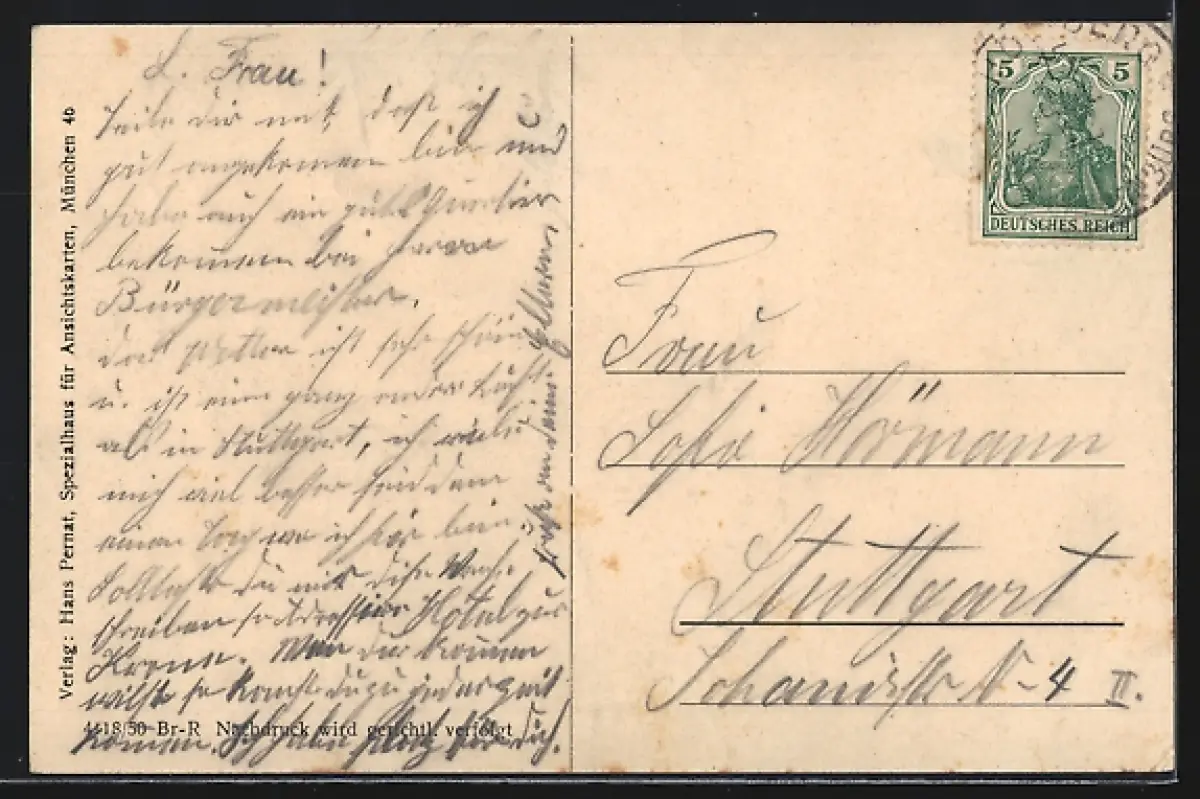 L. Frau!
Teile dir mit, daß ich
gut angekomen bin und
habe auch ein gutes Quartier
bekommen bei Herrn
Bürgermeister.
Das Wetter ist sehr schön
u. ist eine ganz andre Luft
als in Stuttgart, ich
mich viel besser seid dem
einen Tag wo ich hier bin.
Solltest du mir dise Woche
schreiben so Adressire Hotel zur
Krone. Wen du kommen
willst so kanst du zu jeder Zeit
komen. Ich habe platz für dich.
Verlag: Hans Pernat, Spezialhaus für Ansichtskarten, München 46
4418/50 Br-R Nachdruck wird gerichtl. verfolgt
5 5
DEUTSCHES REICH
Frau
Sofie Hörmann
Stuttgart
N- 4 III.